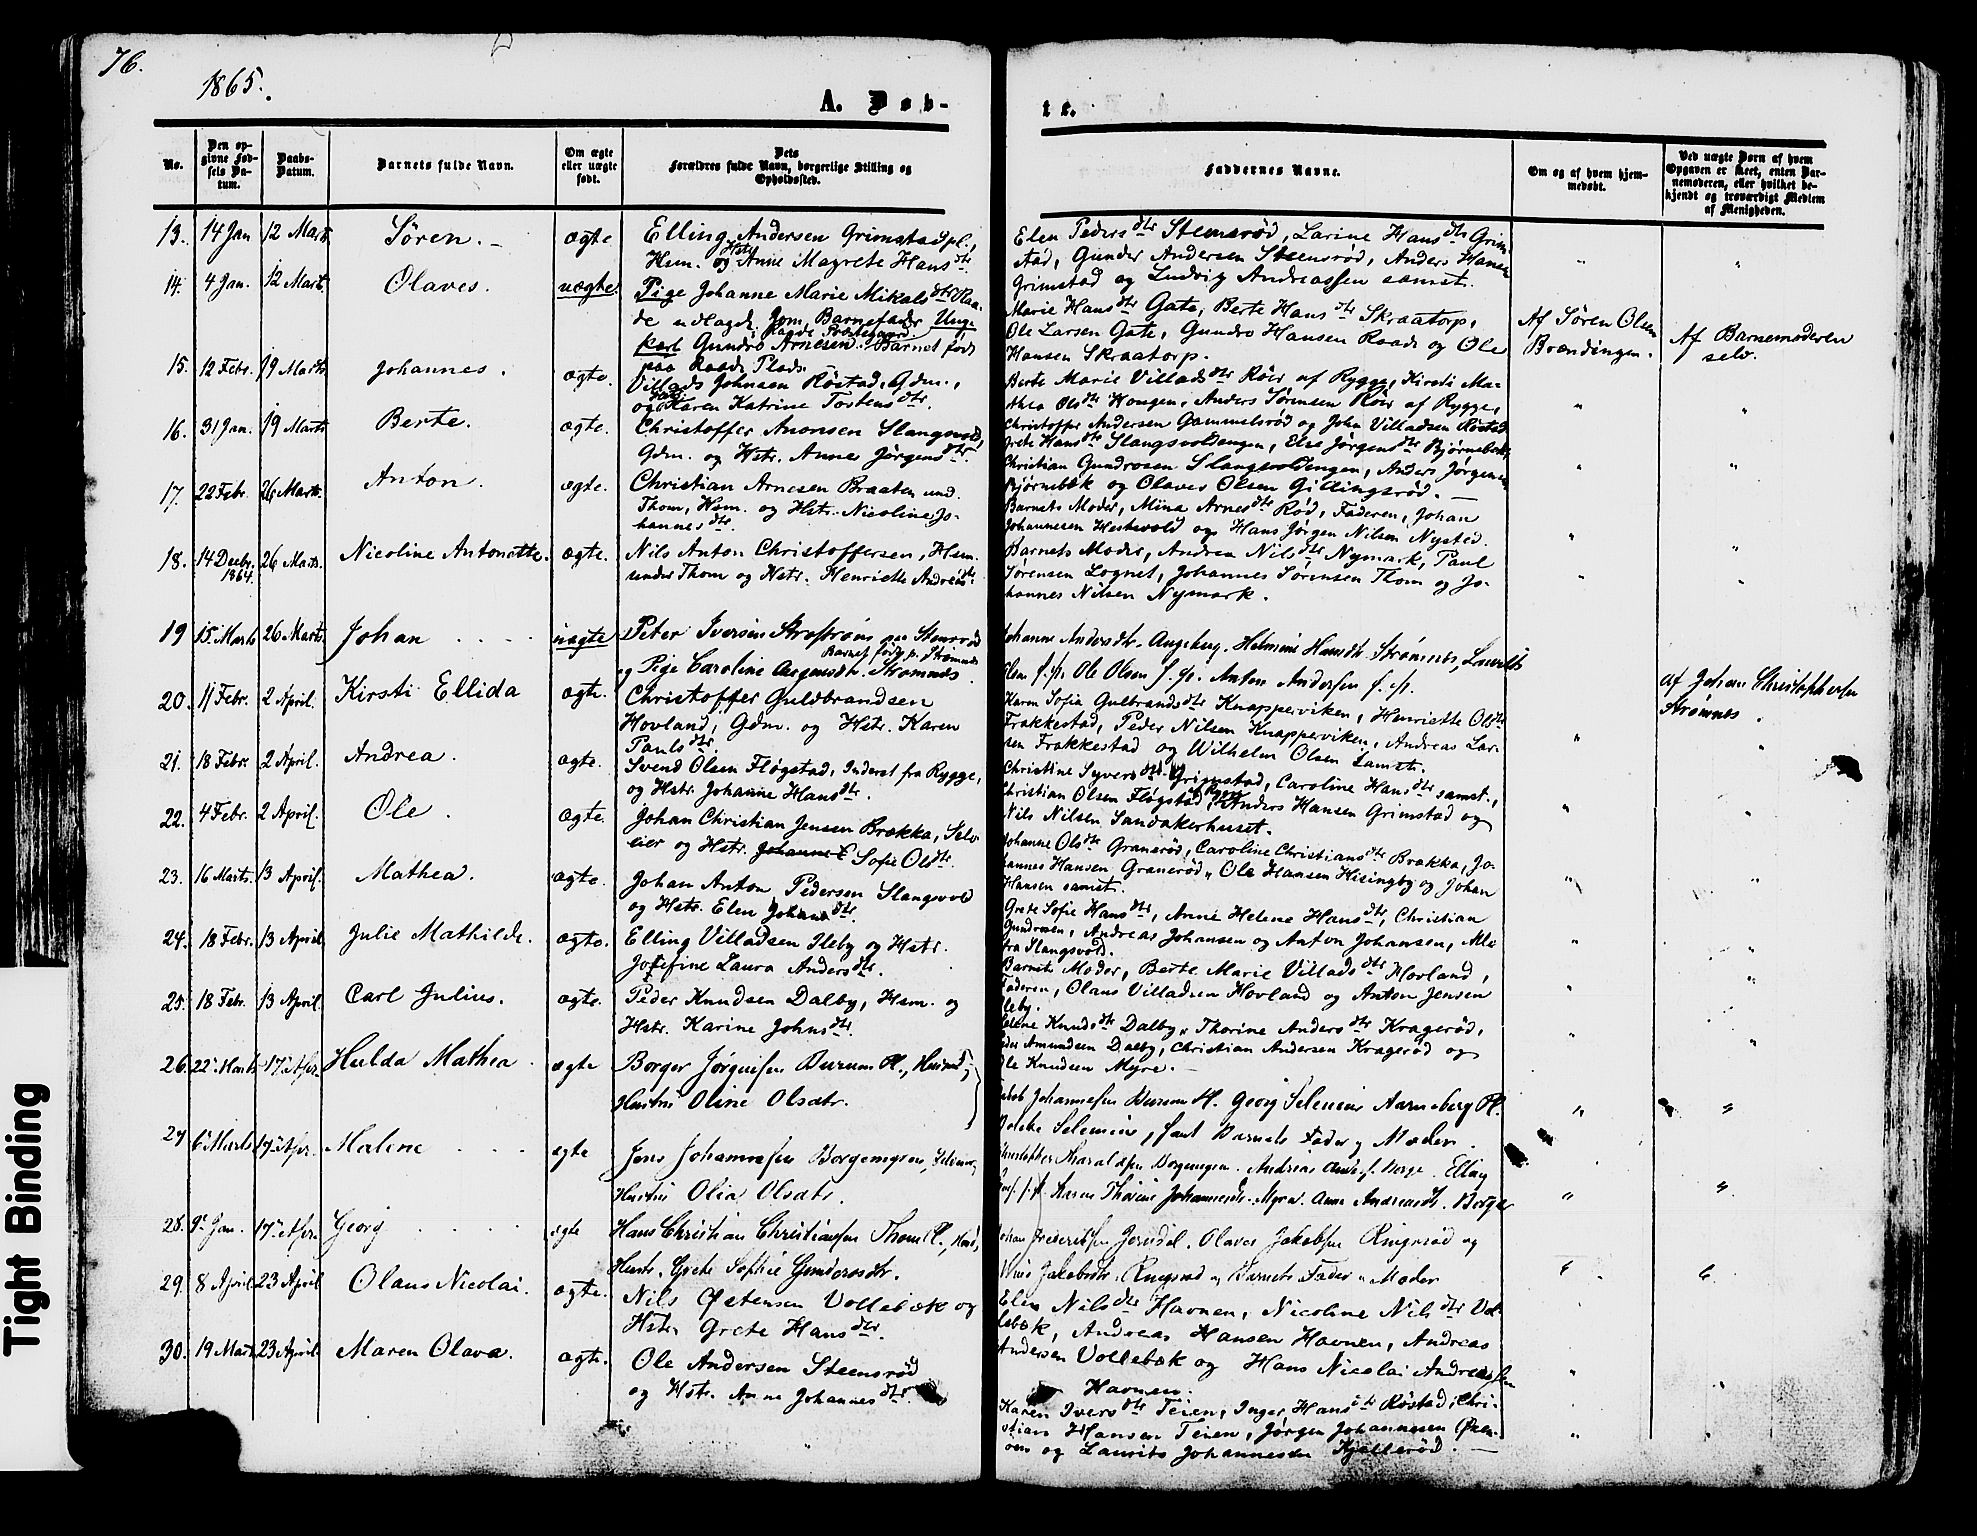 76.
1865.
A. Døb-
te.
No.
Den op-
givne Fød-
sels Da-
tum.
Daabs-
Datum.
Barnets fulde Navn.
Om ægte
eller uægte
født.
Dets
Forældres fulde Navn, borgerlige Stilling og
Opholdssted.
Faddernes Navne.
Om og af hvem hjem-
medøbt.
Ved uægte Børn af hvem
Opgaven er skeet, enten Bar-
nemoderen, eller hvilket be-
kjendt og troværdigt Medlem
af Menigheden.
13. 14 Jan 12 Marts Søren. - ægte
Elling Andersen Grimstadpl.,
Hsm. og Hstr. Anne Magrete Hansdtr.
Elen Pedersdtr Steensrød, Larine Hansdtr Grim-
stad, Gunder Andersen Steensrød, Anders Hansen
Grimstad og Ludvig Andreassen samst.
14. 4 Jan. 12 Marts. Olaves. uægte
Pige Johanne Marie Mikalsdtr Raa-
de udlagde som Barnefader Ung-
karl Gundro Arnesen. Barnet født
paa Raade Plads.
Marie Hansdtr Gate, Berte Hansdtr Skraatorp,
Ole Larsen Gate, Gundro Hansen Raade og Ole
Hansen Skraatorp.
Af Søren Olsen
Brændingen.
Af Barnemoderen
selv.
15. 12 Febr. 19 Marts Johannes. ægte.
Villads Johnsen Røstad, Gdm.,
og Hstr. Karen Katrine Torstensdtr.
Berte Marie Villadsdtr Röer af Rygge, Kirsti Ma-
thea Olsdtr Haugen, Anders Sørensen Röer af Rygge,
Christoffer Andersen Gammelsrød og John Villadsen Røstad.
16. 31 Jan. 19 Marts Berte. ægte.
Christoffer Aronsen Slangsvold,
Gdm. og Hstr. Anne Jørgensdtr.
Grete Hansdtr Slangsvoldengen, Else Jørgensdtr Bjørnebek,
Christian Gundrosen Slangsvoldengen, Anders Jørgensen
Bjørnebæk og Olaves Olsen Gillingsrød. -
17. 22 Febr. 26 Marts. Anton. ægte.
Christian Arnesen Braaten und.
Thom, Hsm. og Hstr. Nicoline Jo-
hannesdtr.
Barnets Moder, Mina Arnesdtr Rød, Faderen, Johan
Johannesen Hestevold og Hans Jørgen Nilsen Nysted.
18. 14 Decbr. 1864. 26 Marts. Nicoline Antonette. ægte.
Nils Anton Christoffersen, Hsm.
under Thom og Hstr. Henriette Andreasdtr.
Barnets Moder, Andrea Nilsdtr Nymark, Paul
Sørensen Lognet, Johannes Sørensen Thom og Jo-
hannes Nilsen Nymark.
19 15 Marts 26 Marts. Johan uægte
Peter Iversen
Barnet født p. Strømnes
og Pige Caroline Strømnes.
Johanne Andersdtr. Augeberg, Helmine Hansdtr. Strømnes,
Ole Olsen Anton Andersen
af Johan Christophersen
Strømnes.
20. 11 Febr. 2 April. Kirsti Ellida ægte.
Christoffer Guldbrandsen
Hovland, Gdm. og Hstr. Karen
Paulsdtr.
Karen Sofia Gulbrandsdtr Knapperviken, Henriette Olsdtr
Frakkestad, Peder Nilsen Knapperviken, Andreas Lar-
sen Frakkestad og Wilhelm Olsen samst.
21. 18 Febr. 2 April. Andrea. ægte.
Svend Olsen Fløgstad, Inderst fra Rygge,
og Hstr. Johanne Hansdtr.
Christine Syversdtr Grimstad, Caroline Hansdtr samst.,
Christian Olsen Fløgstad af Rygge, Anders Hansen Grimstad og
Nils Nilsen Sandakerhuset.
22. 4 Febr. 2 April. Ole. ægte.
Johan Christian Jensen Brække, Selv-
eier og Hstr. Sofie Olsdtr.
Johanne Olsdtr Granerød, Caroline Christiansdtr Brække, Jo-
hannes Hansen Granerød, Ole Hansen Hisingby og Johan
Hansen samst.
23. 16 Marts. 13 April. Mathea. ægte.
Johan Anton Pedersen Slangsvold
og Hstr. Elen Johansdtr.
Grete Sofie Hansdtr, Anne Helene Hansdtr, Christian
Gundrosen, Andreas Johansen og Anton Johansen, Alle
fra Slangsvold.
24. 18 Febr. 13 April. Julie Mathilde. ægte.
Elling Villadsen Ileby og Hstr.
Josefine Laura Andersdtr.
Barnets Moder, Berte Marie Villadsdtr Hovland,
Faderen, Olaus Villadsen Hovland og Anton Jensen
Ileby.
25. 18 Febr. 13 April. Carl Julius. ægte.
Peder Knudsen Dalby, Hsm. og
Hstr. Karine Johnsdtr.
Helene Knudsdtr Dalby, Thorine Andersdtr Kragerød,
Peder Amundsen Dalby, Christian Andersen Kragerød og
Ole Knudsen Myre. -
26. 22 Marts 17 Apr. Hulda Mathea ægte
Borger Jørgensen Burum Pl., Husmd,
Hustru Oline Olsdtr.
Johannesen Burum Pl. Georg Selenius Aarneberg Pl.
Selenius, samt Barnets Fader og Moder.
27 6 Marts 17 Apr. Malene ægte
Jens Johannesen Borgeengen,
Hustru Olia Olsdtr.
Christopher Haraldsen Borgeengen. Andreas Borge. Elling
Karen Thorine Johannesdtr. Myra. Anne Andreasdtr. Borge
28. 9 Jan. 17 Apr. Georg ægte
Hans Christian Christiansen Thom Pl.,
Hustr. Grete Sophie Gundersdtr.
Johan Olaves Jakobsen Ringsrød og
Jakobsdtr. Ringsrød og Barnets Fader og Moder
29. 8 April 23 April Olaus Nicolai. ægte.
Nils Østensen Vollebæk og
Hstr. Grete Hansdtr.
Elen Nilsdtr Havnen, Nicoline Nilsdtr Vol-
lebæk, Andreas Hansen Havnen, Andreas
Andersen Vollebæk og Hans Nicolai Andreassen
Havnen.
30. 19 Marts 23 April. Maren Olava. ægte.
Ole Andersen Steensrød
og Hstr. Anne Johannesdtr.
Karen Iversdtr Teien, Inger Hansdtr Røstad, Chri-
stian Hansen Teien, Jørgen Johannesen Øxen-
om og Laurits Johannesen Kjællerød. -
Tight Binding